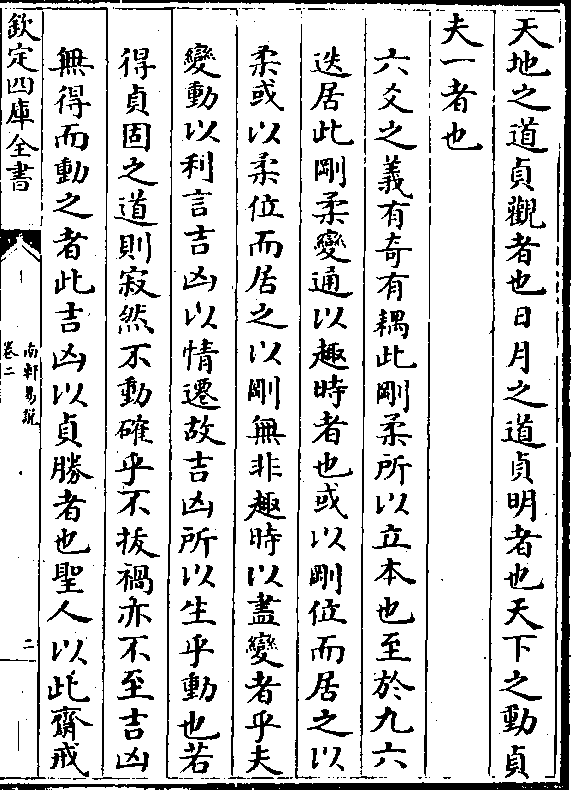 天地之道貞觀者也日月之道貞明者也天下之動貞
夫一者也
六爻之義有奇有耦此剛柔所以立本也至於九六
迭居此剛柔變通以趣時者也或以剛位而居之以
柔或以柔位而居之以剛無非趣時以盡變者乎夫
變動以利言吉凶以情遷故吉凶所以生乎動也若
得貞固之道則寂然不動確乎不拔禍亦不至吉凶
無得而動之者此吉凶以貞勝者也聖人以此齋戒
欽定四庫全書
南軒易說
卷二
二